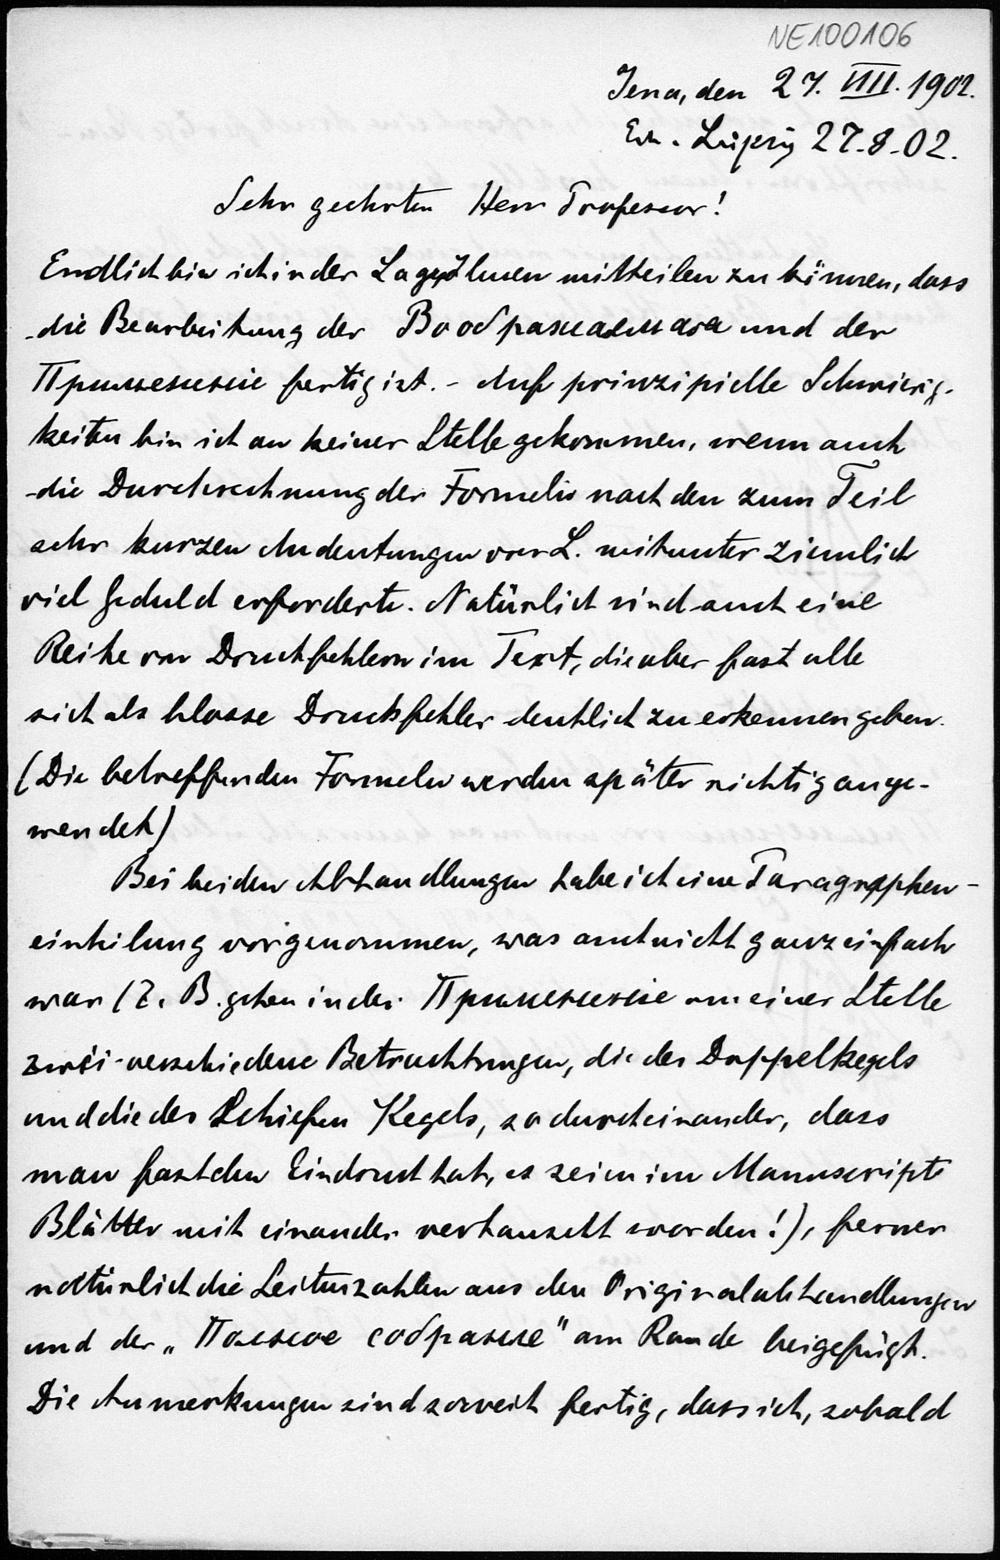 NE100106
Jena, den 27. VIII. 1902.
Erh. Leipzig 27.8.02.
Sehr geehrter Herr Professor!
Endlich bin ich in der Lage, Ihnen mitteilen zu können, dass
die Bearbeitung der Воображаемая und der
Применение fertig ist. – Auf prinzipielle Schwierig-
keiten bin ich an keiner Stelle gekommen, wenn auch
die Durchrechnung der Formeln nach den zum Teil
sehr kurzen Andeutungen von L. mitunter ziemlich
viel Geduld erforderte. Natürlich sind auch eine
Reihe von Druckfehlern im Text, die aber fast alle
sich als blosse Druckfehler deutlich zu erkennen geben.
(Die betreffenden Formeln werden später richtig ange-
wendet)
Bei beiden Abhandlungen habe ich eine Paragraphen-
einteilung vorgenommen, was auch nicht ganz einfach
war (Z. B. gehen in der Применение an einer Stelle
zwei verschiedene Betrachtungen, die des Doppelkegels
und die des Schiefen Kegels, so durcheinander, dass
man fast den Eindruck hat, es seien im Manuscripte
Blätter mit einander vertauscht worden!), ferner
natürlich die Seitenzahlen aus den Originalabhandlungen
und der „Полное собрание" am Rande beigefügt.
Die Anmerkungen sind soweit fertig, dass ich, sobald